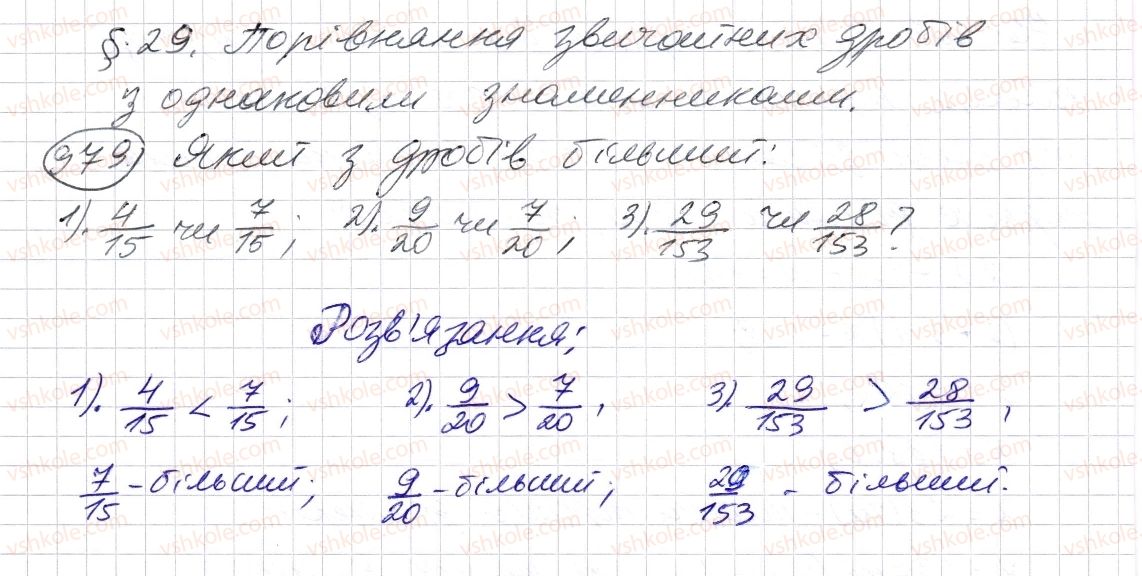 §.29. Порівняння звичайних дробів
з однаковими знаменниками.
979.) Який з дробів більший:
1). 4/15 чи 7/15; 2). 9/20 чи 7/20; 3). 29/153 чи 28/153?
Розв'язання;
1). 4/15 < 7/15; 2). 9/20 > 7/20, 3). 29/153 > 28/153,
7/15 - більший; 9/20 - більший; 29/153 - більший.